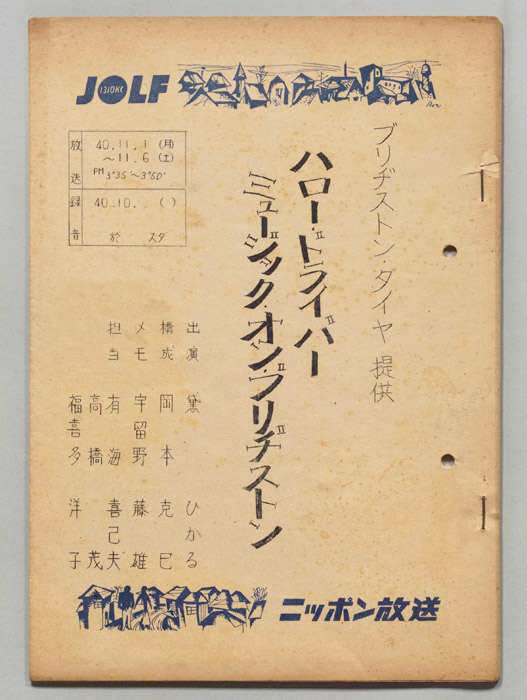 JOLF
1310KC
ブリヂストン・タイヤ 提供
ハロー・ドライバー
ミュージック・オン・ブリヂストン
放送 40.11.1(月)
〜11.6(土)
PM3°35'〜3°50'
録音 40.10. . ( )
於 スタ
出演 黛 ひかる
構成 岡本 克巳
メモ 宇留野 藤雄
担当 有海 喜己夫
高橋 茂
福喜多 洋子
ニッポン放送